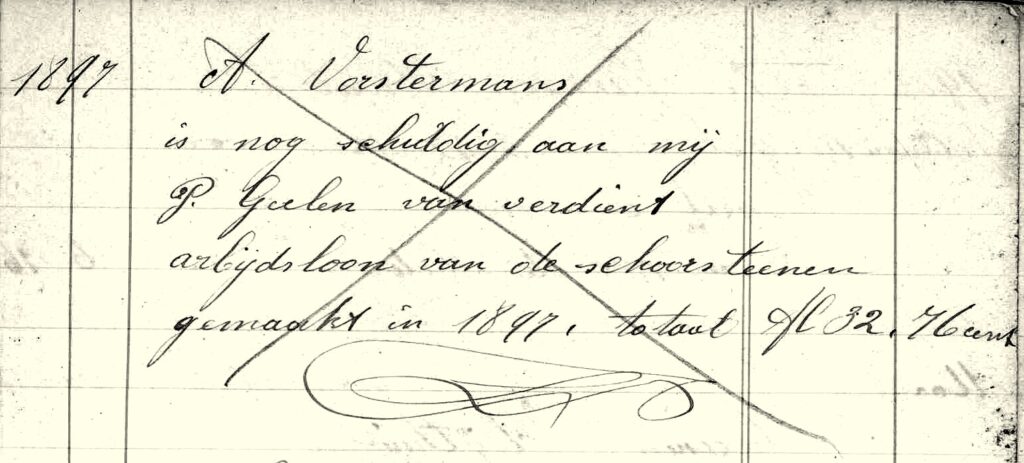 1897 A. Vorstermans
is nog schuldig aan mij
P. Geelen van verdient
arbijdsloon van de schoorsteenen
gemaakt in 1897, totaal fl 32, 76 cent